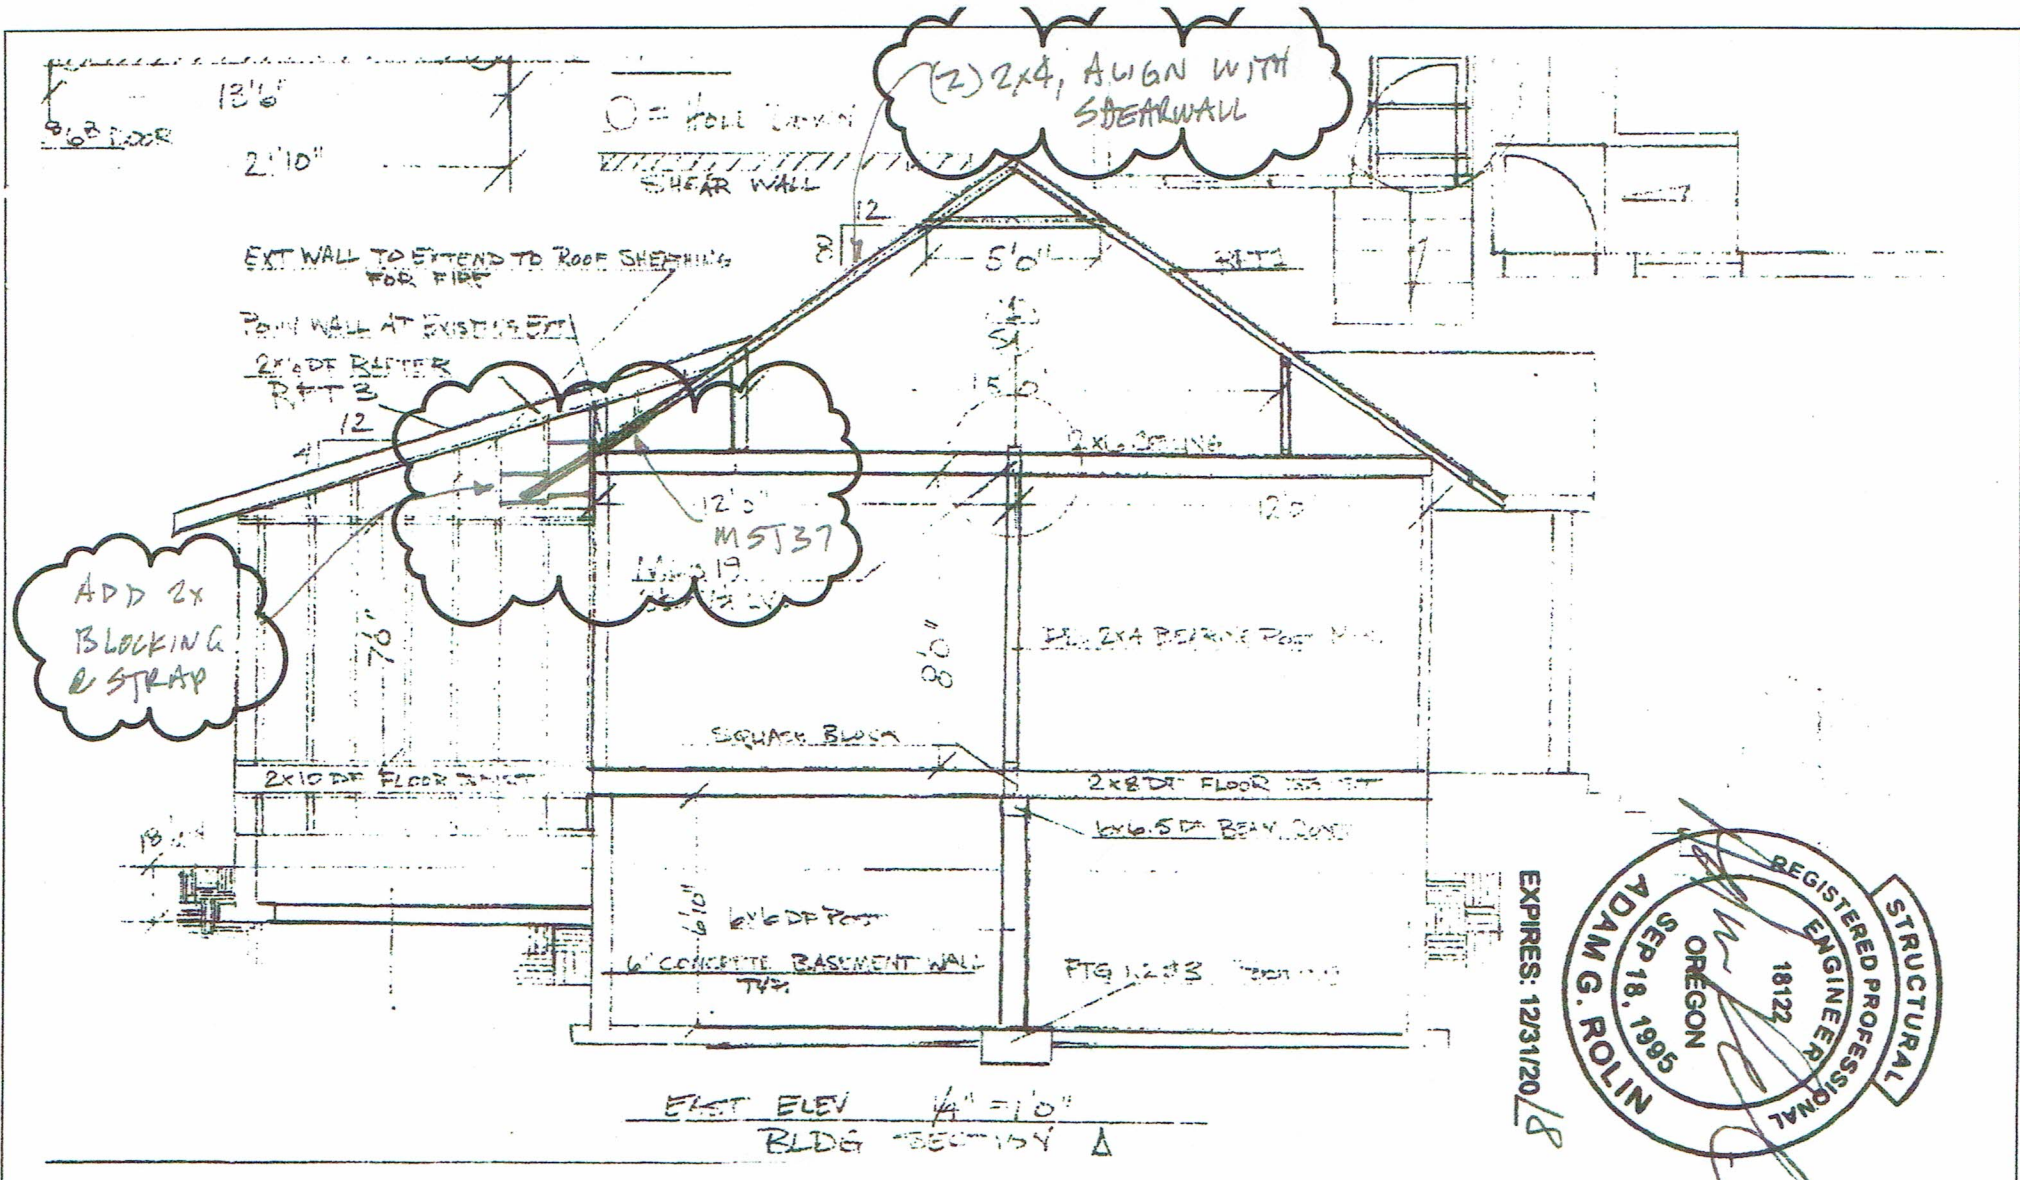 (2) 2x4, ALIGN WITH
SHEARWALL
13'6"
DOOR
21'10"
= HOLD DOWN
SHEAR WALL
12
8
5'0"
EXT WALL TO EXTEND TO ROOF SHEATHING
FOR FIRE
PONY WALL AT EXISTING EXT
2x6 DF RAFTER
RFT 3
12
4
2x6 CEILING
12'0"
12'0
MST37
ADD 2x
BLOCKING
& STRAP
7'0"
8'0"
2x4 BEARING POST
SQUASH BLOCK
2x10 DF FLOOR JOIST
2x8 DF FLOOR JOIST
BEAM
18"
6'10"
6x6 DF POST
6" CONCRETE BASEMENT WALL
TYP.
FTG 1,2 & 3
EAST ELEV 1/4" = 1'0"
BLDG SECTION A
STRUCTURAL
REGISTERED PROFESSIONAL
ENGINEER
18122
OREGON
SEP 18, 1995
ADAM G. ROLIN
EXPIRES: 12/31/2018